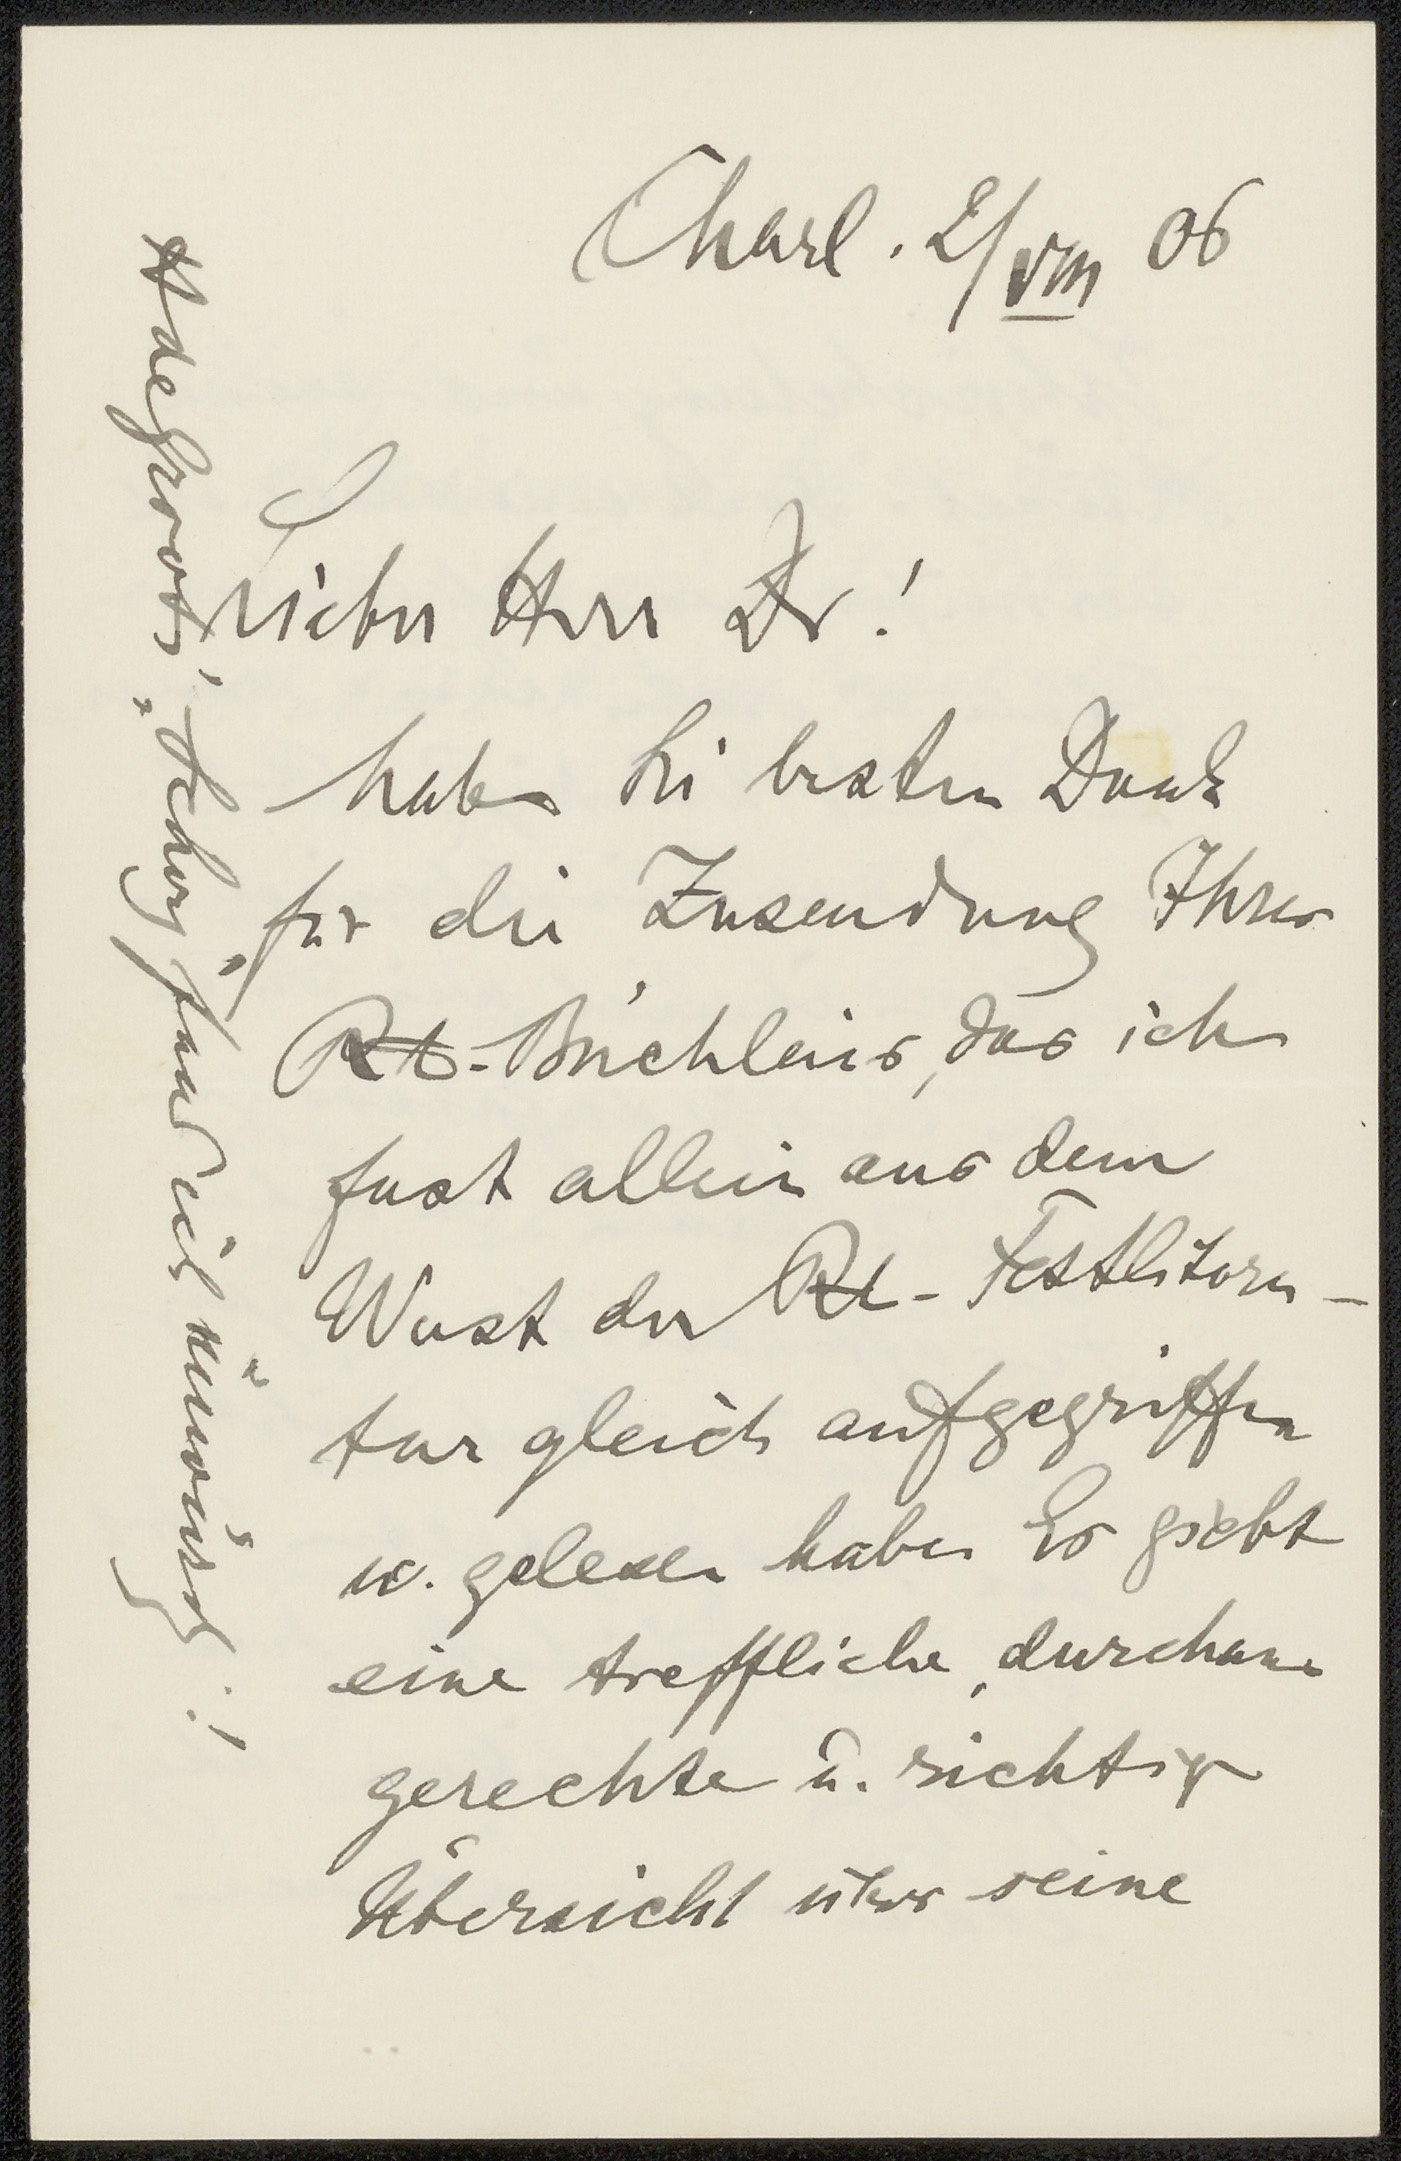 Charl. 2/VIII 06
Lieber Herr Dr!
haben Sie besten Dank
für die Zusendung Ihres
Rt-Büchleins, das ich
fast allein aus dem
Wust der Rt-Festlitera-
tur gleich aufgegriffen
u. gelesen habe. Es giebt
eine treffliche, durchaus
gerechte u. richtige
Übersicht über seine
Hdegroots, "Schuy" fand ich